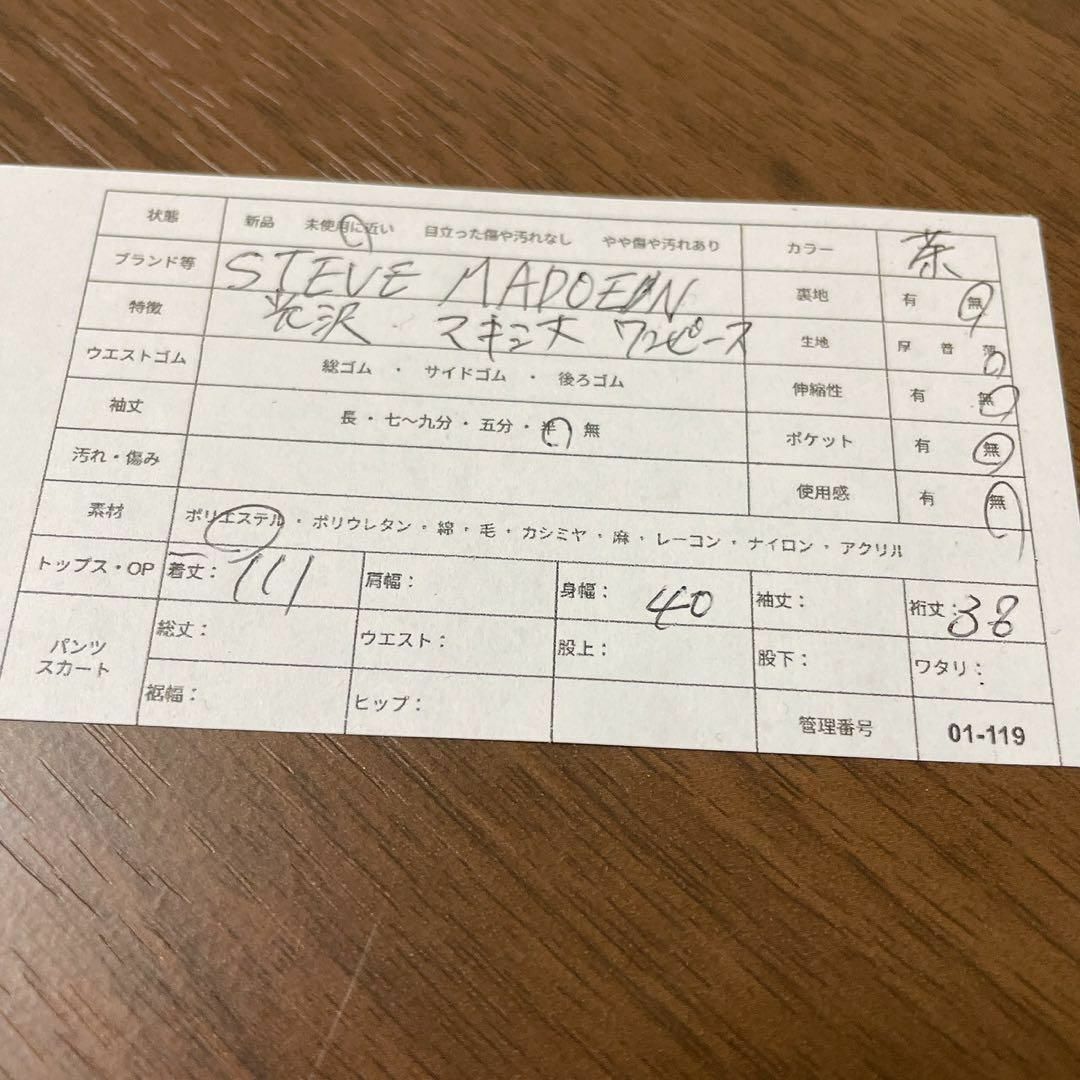 状態 新品 未使用に近い 目立った傷や汚れなし やや傷や汚れあり カラー 茶
ブランド等 STEVE MADOEN 裏地 有 無
特徴 光沢 マキシ丈 ワンピース 生地 厚 普 薄
ウエストゴム 総ゴム ・ サイドゴム ・ 後ろゴム 伸縮性 有 無
袖丈 長・七〜九分・五分・半 無 ポケット 有 無
汚れ・傷み 使用感 有 無
素材 ポリエステル・ポリウレタン・綿・毛・カシミヤ・麻・レーヨン・ナイロン・アクリル
トップス・OP 着丈：111 肩幅： 身幅： 40 袖丈： 裄丈：38
パンツ スカート 総丈： ウエスト： 股上： 股下： ワタリ：
裾幅： ヒップ： 管理番号 01-119